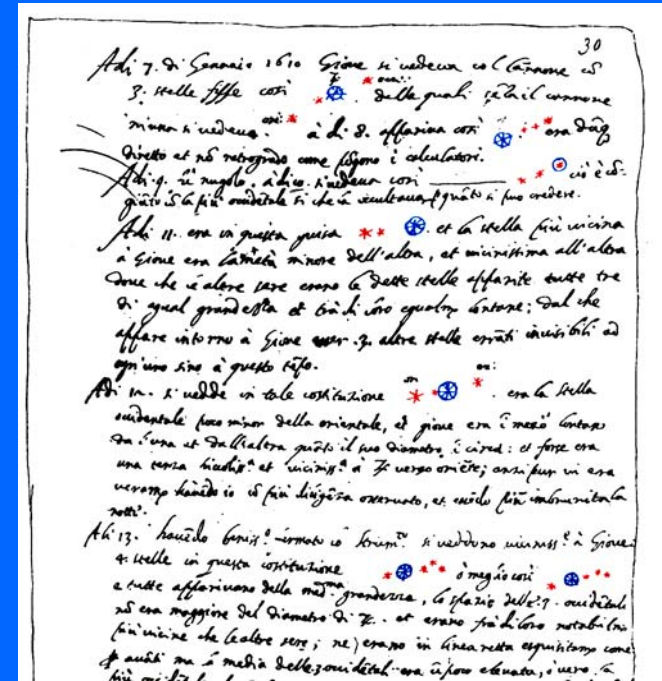 30
Adi 7. di Gennaio 1610 Giove si vedeva col Cannone cõ
3. stelle fisse così delle quali sẽza il cannone
niuna si vedeva. à dì. 8. appariva così era dũq
diretto et nõ retrogrado come põgono i calculatori.
Adi. 9. fù nugolo. à dì. 10. si vedeva così ciò è cõ-
giũto cõ la più occidẽtale sì che la occultava p quãto si può credere.
Adi 11. era in questa guisa et la stella più vicina
à Giove era la metà minore dell'altra, et vicinissima all'altra
dove che le altre sere erano le dette stelle apparite tutte tre
di egual grandezza et trà di loro egualm lontane; dal che
appare intorno à Giove esser .3. altre stelle errãti invisibili ad
ogn'uno sino à questo tẽpo.
Adi 12. si vedde in tale costituzione era la stella
occidentale poco minor della orientale, et giove era ĩ mezo lontano
da l'una et dall'altra quãto il suo diametro ĩ circa: et forse era
una terza piccoliss.ª et viciniss.ª à ♃ verso oriẽte; anzi pur vi era
veramẽ havẽdo io cõ più diligẽza osservato, et essẽdo più imbrunita la
notte.
Adi 13. havẽdo beniss.º fermato lo strum.to si veddono viciniss.e à Giove
4. stelle in questa costituzione ò meglio così
e tutte apparivano della med.ma grandezza, lo spazio delle .3. occidẽtali
nõ era maggiore del diametro di ♃. et erano frà di loro notabilmẽ
più vicine che le altre sere; ne erano in linea retta esquisitamẽ come
avãti ma la media delle 3 occidẽtali era ũ poco elevata, ò vero la